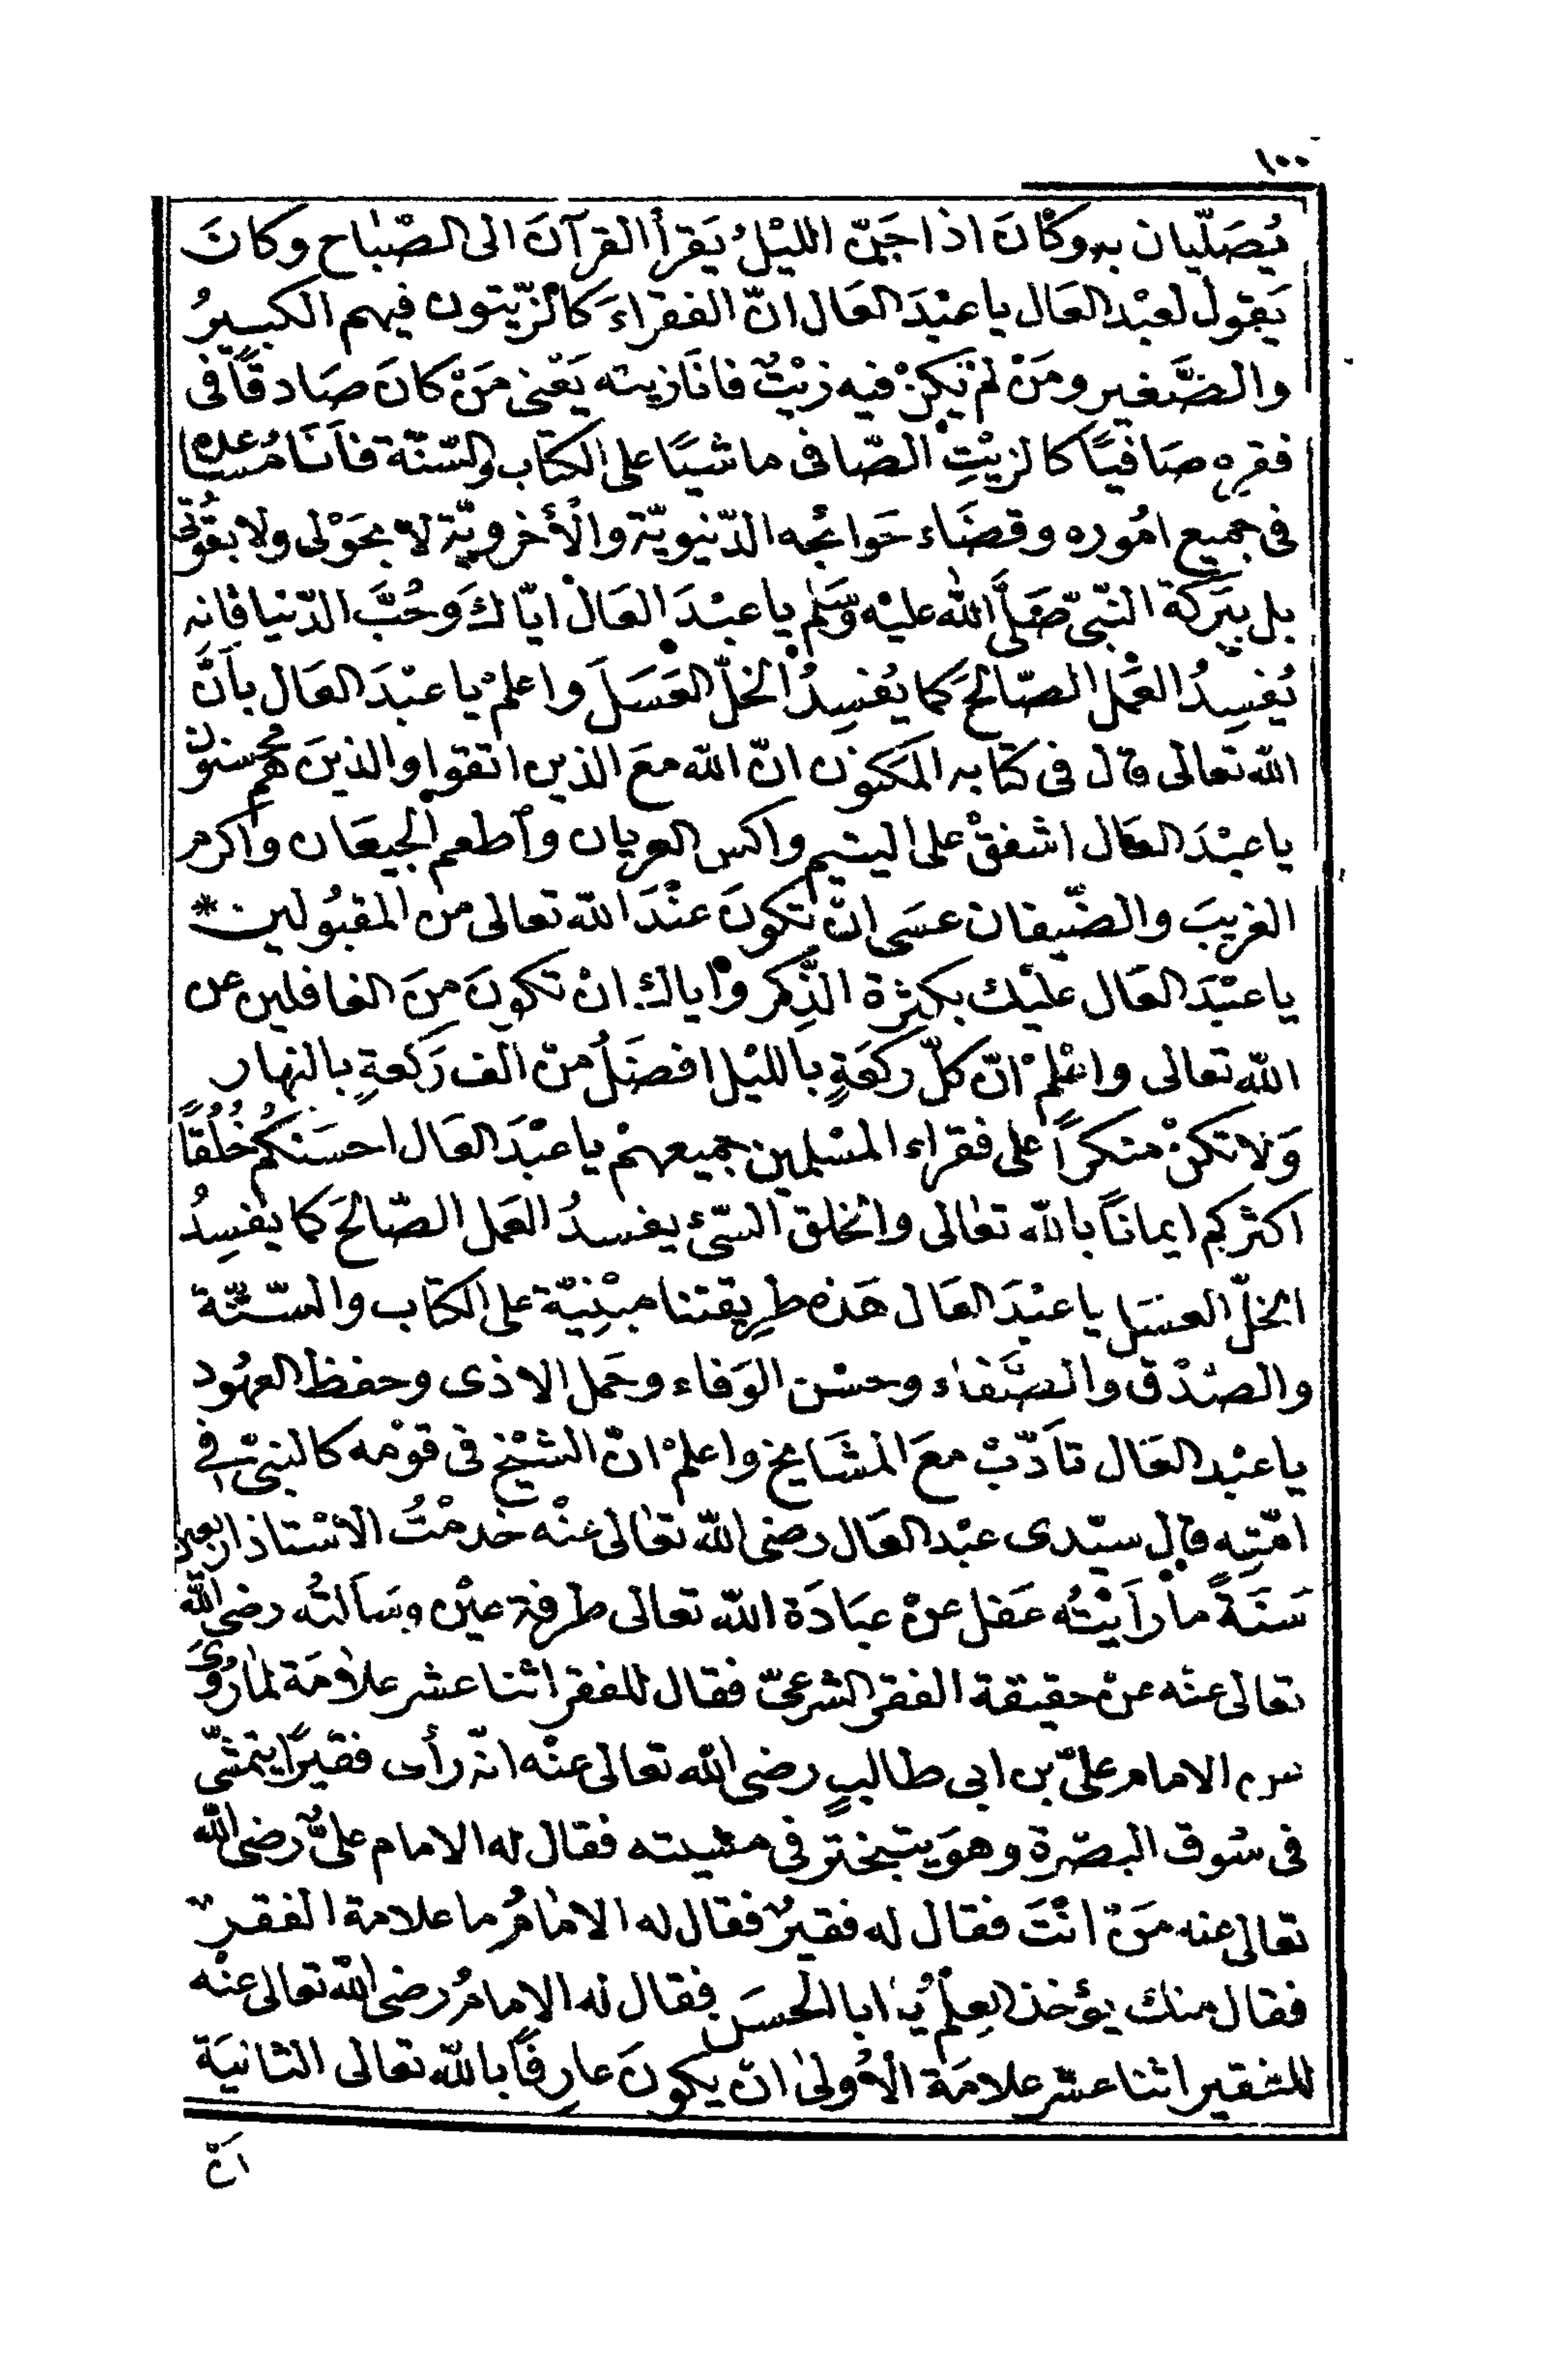 ١٠٠
يُصَلّيان به وكَانَ اذا جَنّ الليْلُ يَقرأ القرآنَ الى الصّباح وكانَ
يَقول لعبْد العَال يا عبْدَ العَال انّ الفقراءَ كالزّيتون فيهم الكبيرُ
والصَّغير ومَنْ لمْ يَكنْ فيه زيْتٌ فانَا زيته يَعْنى مَنْ كانَ صَادقًا فى
فقره صَافيًا كالزيْتِ الصّافى ماشيًا على الكتاب والسّنّة فأنَا مُساعده
فى جميع امُوره وقضَاء حَوائجه الدّنيويّة والأخرويّة لا بحَوْلى ولا بقُوّتى
بل ببَركة النّبىّ صَلَّى اللّٰه عليْه وَسَلم يا عبْدَ العَال ايّاكَ وَحُبَّ الدّنيا فانه
يُفسِدُ العَمَل الصّالحَ كما يُفسِدُ الخلّ العَسَلَ واعلمْ يا عبْدَ العَال بأنَّ
اللّه تعالى قال فى كتابه المكنون انّ اللّه معَ الذين اتقوا والذينَ هم محسنون
يا عبْدَ العَال اشفقْ على اليتيم واكس العريان وأطعم الجيعَان واكرم
الغريبَ والضّيفان عسَى انْ تكونَ عنْدَ اللّه تعالى من المقبُولين *
يا عبْدَ العَال عليْك بكثرة الذِّكر واياك انْ تكونَ منَ الغافلين عن
اللّه تعالى واعْلمْ انّ كلّ ركعَةٍ بالليْل افضَلُ منْ الف رَكعةٍ بالنهار
وَلا تكنْ منكرًا على فقراء المسْلمين جميعهمْ يا عبْدَ العَال احسَنكُم خُلُقًا
اكثركم ايمانًا باللّه تعالى والخلق السّئ يفسدُ العَمل الصّالحَ كما يفسِدُ
الخلّ العسَل يا عبْدَ العَال هَذه طريقتنا مبْنيّة على الكتاب والسّنّة
والصّدْق والصَّفاء وحسْن الوَفاء وحَمل الاذى وحفظ العهُود
يا عبْد العَال تأدّبْ معَ المشَايخ واعلمْ انّ الشيْخ فى قوْمه كالنبىّ فى
امّتِه قال سيّدى عبْد العَال رضى اللّه تعالى عنْه خدمْتُ الاسْتاذ اربعين
سَنَةً ما رأيْتُه غفل عنْ عبَادَة اللّه تعالى طرفة عيْن وسَألتُه رضى اللّه
تعالى عنْه عنْ حقيقة الفقر الشرعىّ فقال للفقر اثنا عشر علامَة لما رُوىَ
الامام علىّ بن ابى طالبٍ رضى اللّه تعالى عنْه انّه رأى فقيرًا يتمشّى
فى سُوق البصْرة وهوَ يتبختر فى مشيته فقال له الامام علىٌّ رضى اللّه
تعالى عنه مَنْ انْتَ فقال له فقيرٌ فقال له الامامُ ما علامة الفقر
فقال منك يؤخذ العِلمُ يا ابا الحسَن فقال له الامامُ رضى اللّه تعالى عنْه
للفقير اثنا عشر علامَة الأولى ان يكونَ عارفًا باللّه تعالى الثانيَة
انْ